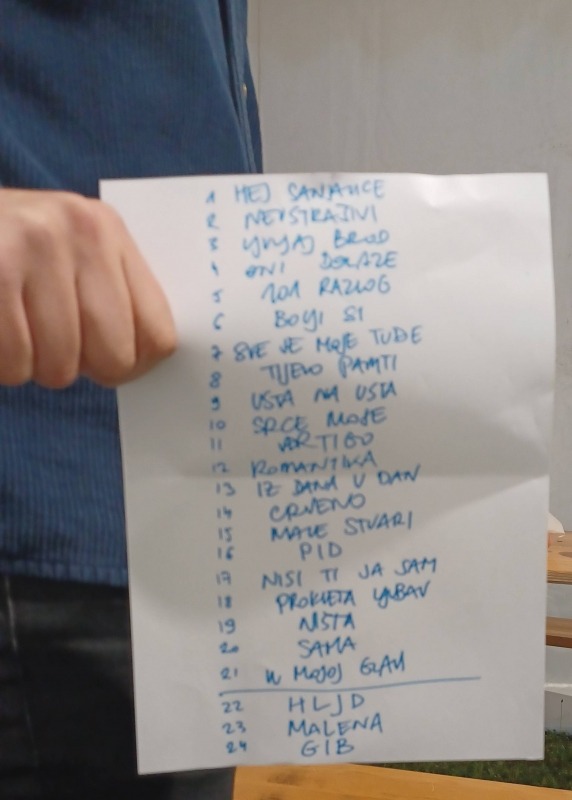 1 HEJ SANJALICE
2 NEISTRAŽIVI
3 LJULJAJ BROD
4 ONI DOLAZE
5 101 RAZLOG
6 BOLJI SI
7 SVE JE MOJE TUĐE
8 TIJELO PAMTI
9 USTA NA USTA
10 SRCE MOJE
11 VRTIGO
12 ROMANTIKA
13 IZ DANA U DAN
14 CRVENO
15 MALE STVARI
16 PID
17 NISI TI JA SAM
18 PROKLETA LJUBAV
19 NIŠTA
20 SAMA
21 U MOJOJ GLAVI
22 HLJD
23 MALENA
24 GIB